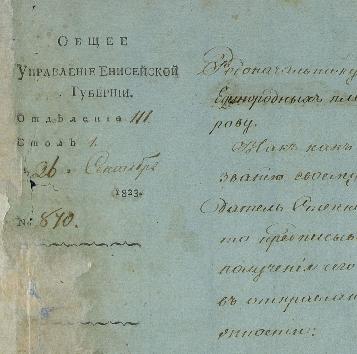 Общее
Управленіе Енисейской
Губерніи.
Отдѣленіе III.
Столъ 1.
26 Сентября
1823.
№ 870.
Родоначальнику
Единородныхъ пле
рову.
Какъ
званію своему
то предписыв
полученія сего
въ отправлен